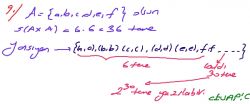 9-) A = {a,b,c,d,e,f} olsun
s(A×A) = 6.6 = 36 tane
Yansıyan → {(a,a),(b,b)(c,c),(d,d)(e,e),f,f ....}
6 tane
30 tane
2³⁰ tane yazılabilir
CEVAP: C